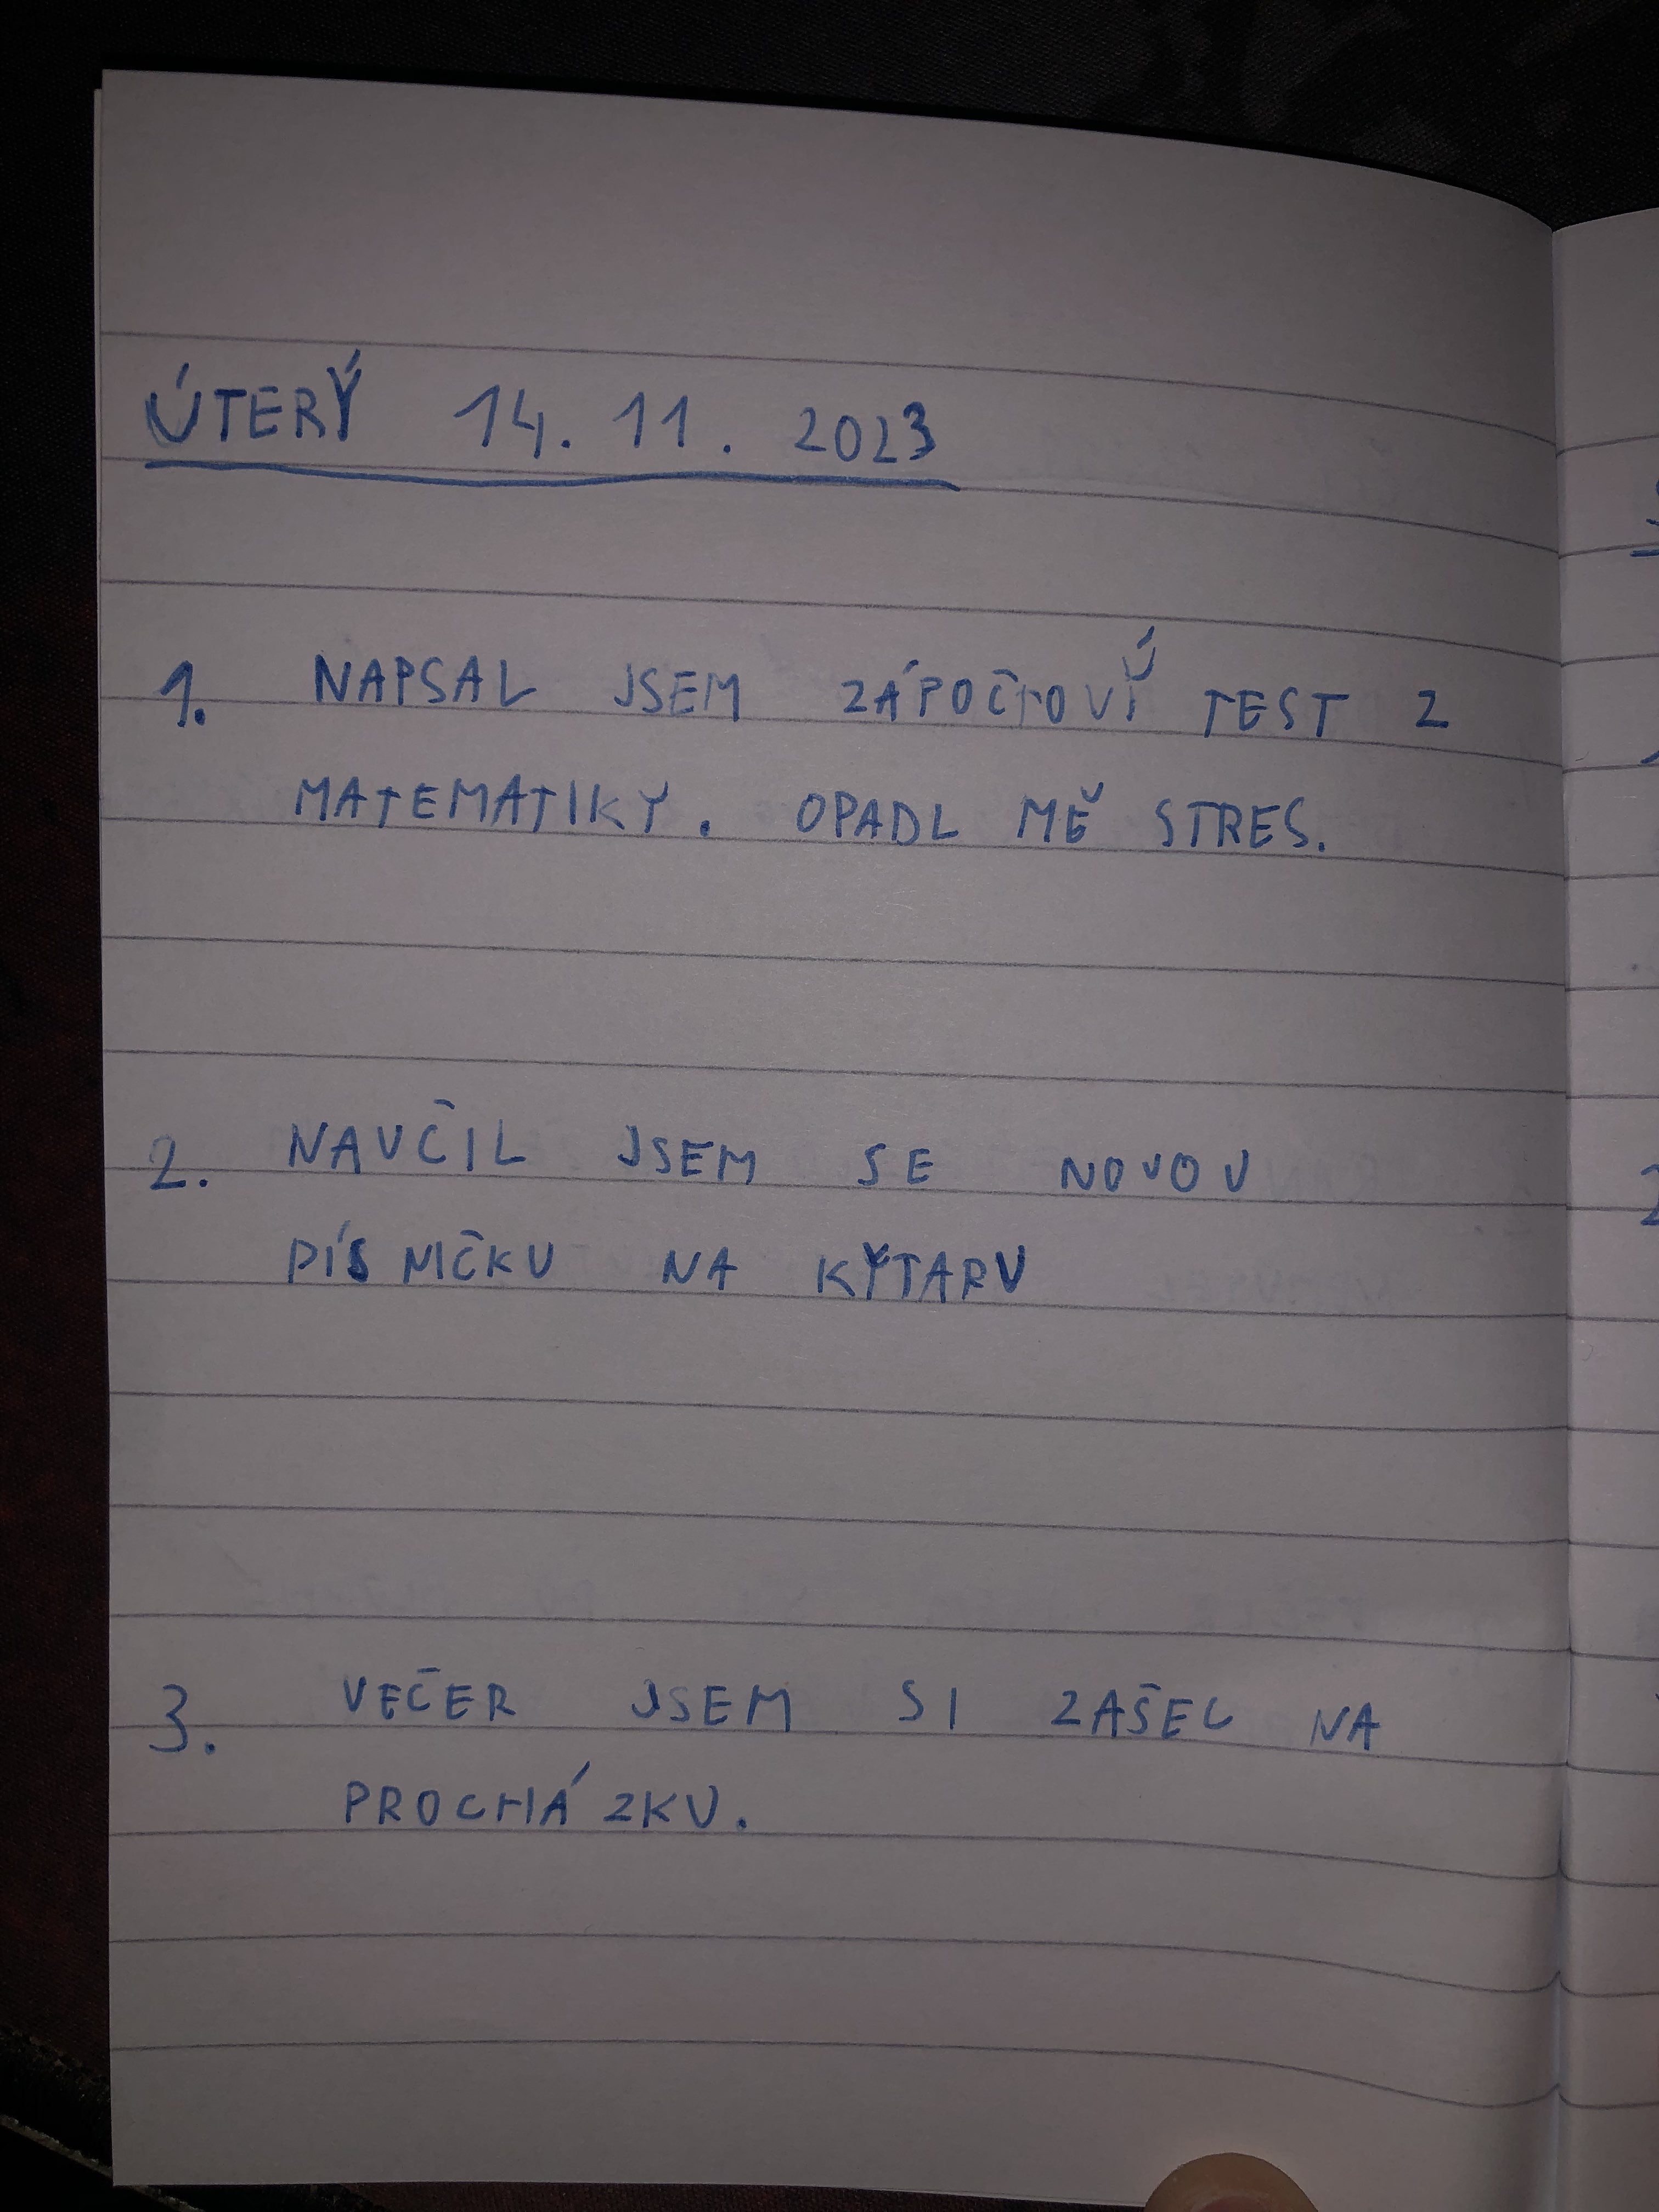 ÚTERÝ 14. 11. 2023
1. NAPSAL JSEM ZÁPOČTOVÝ TEST Z
MATEMATIKY. OPADL MĚ STRES.
2. NAUČIL JSEM SE NOVOU
PÍSNIČKU NA KYTARU
3. VEČER JSEM SI ZAŠEL NA
PROCHÁZKU.